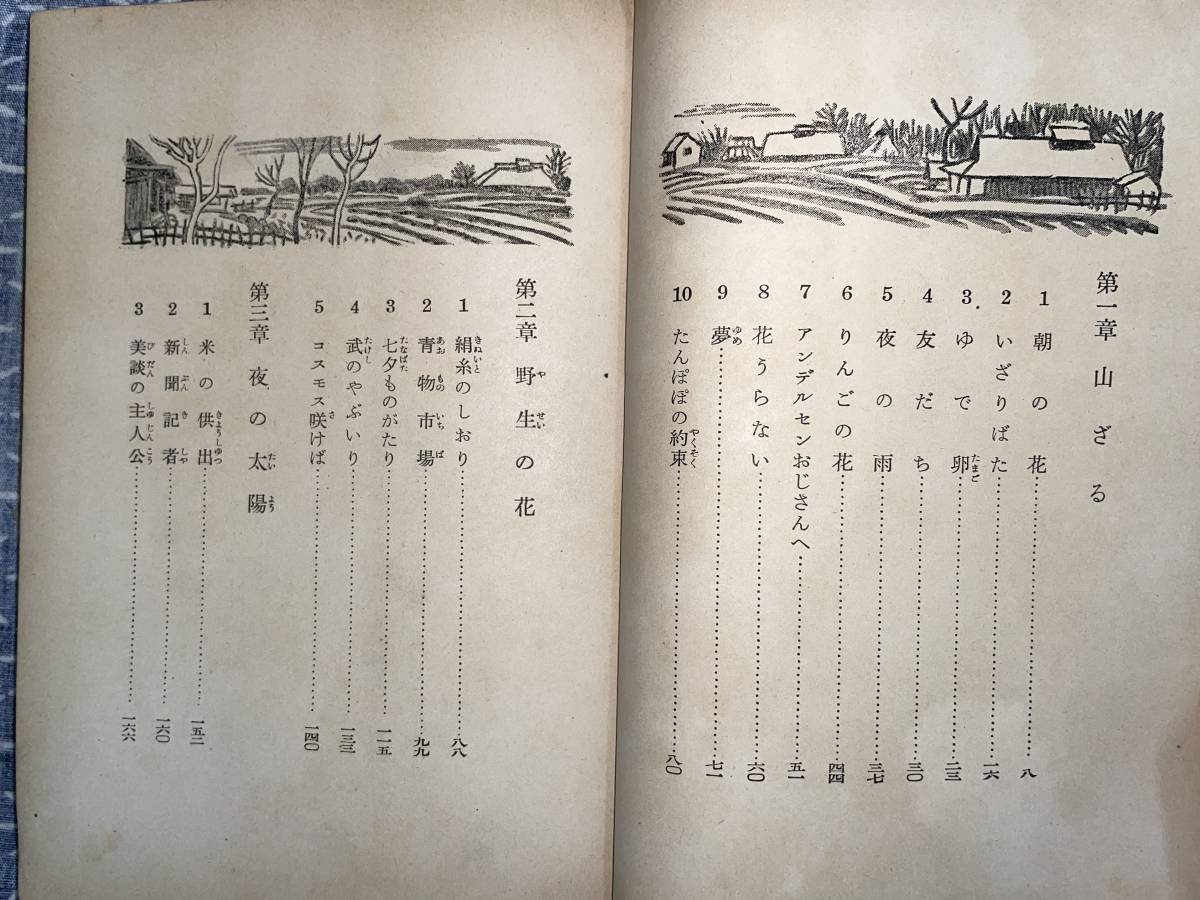 第一章 山ざる
1 朝の花……八
2 いざりばた……一六
3 ゆで卵……二三
4 友だち……三〇
5 夜の雨……三七
6 りんごの花……四四
7 アンデルセンおじさんへ……五一
8 花うらない……六〇
9 夢……七一
10 たんぽぽの約束……八〇
第二章 野生の花
1 絹糸のしおり……八八
2 青物市場……九九
3 七夕ものがたり……一一五
4 武のやぶいり……一三三
5 コスモス咲けば……一四〇
第三章 夜の太陽
1 米の供出……一五二
2 新聞記者……一六〇
3 美談の主人公……一六六